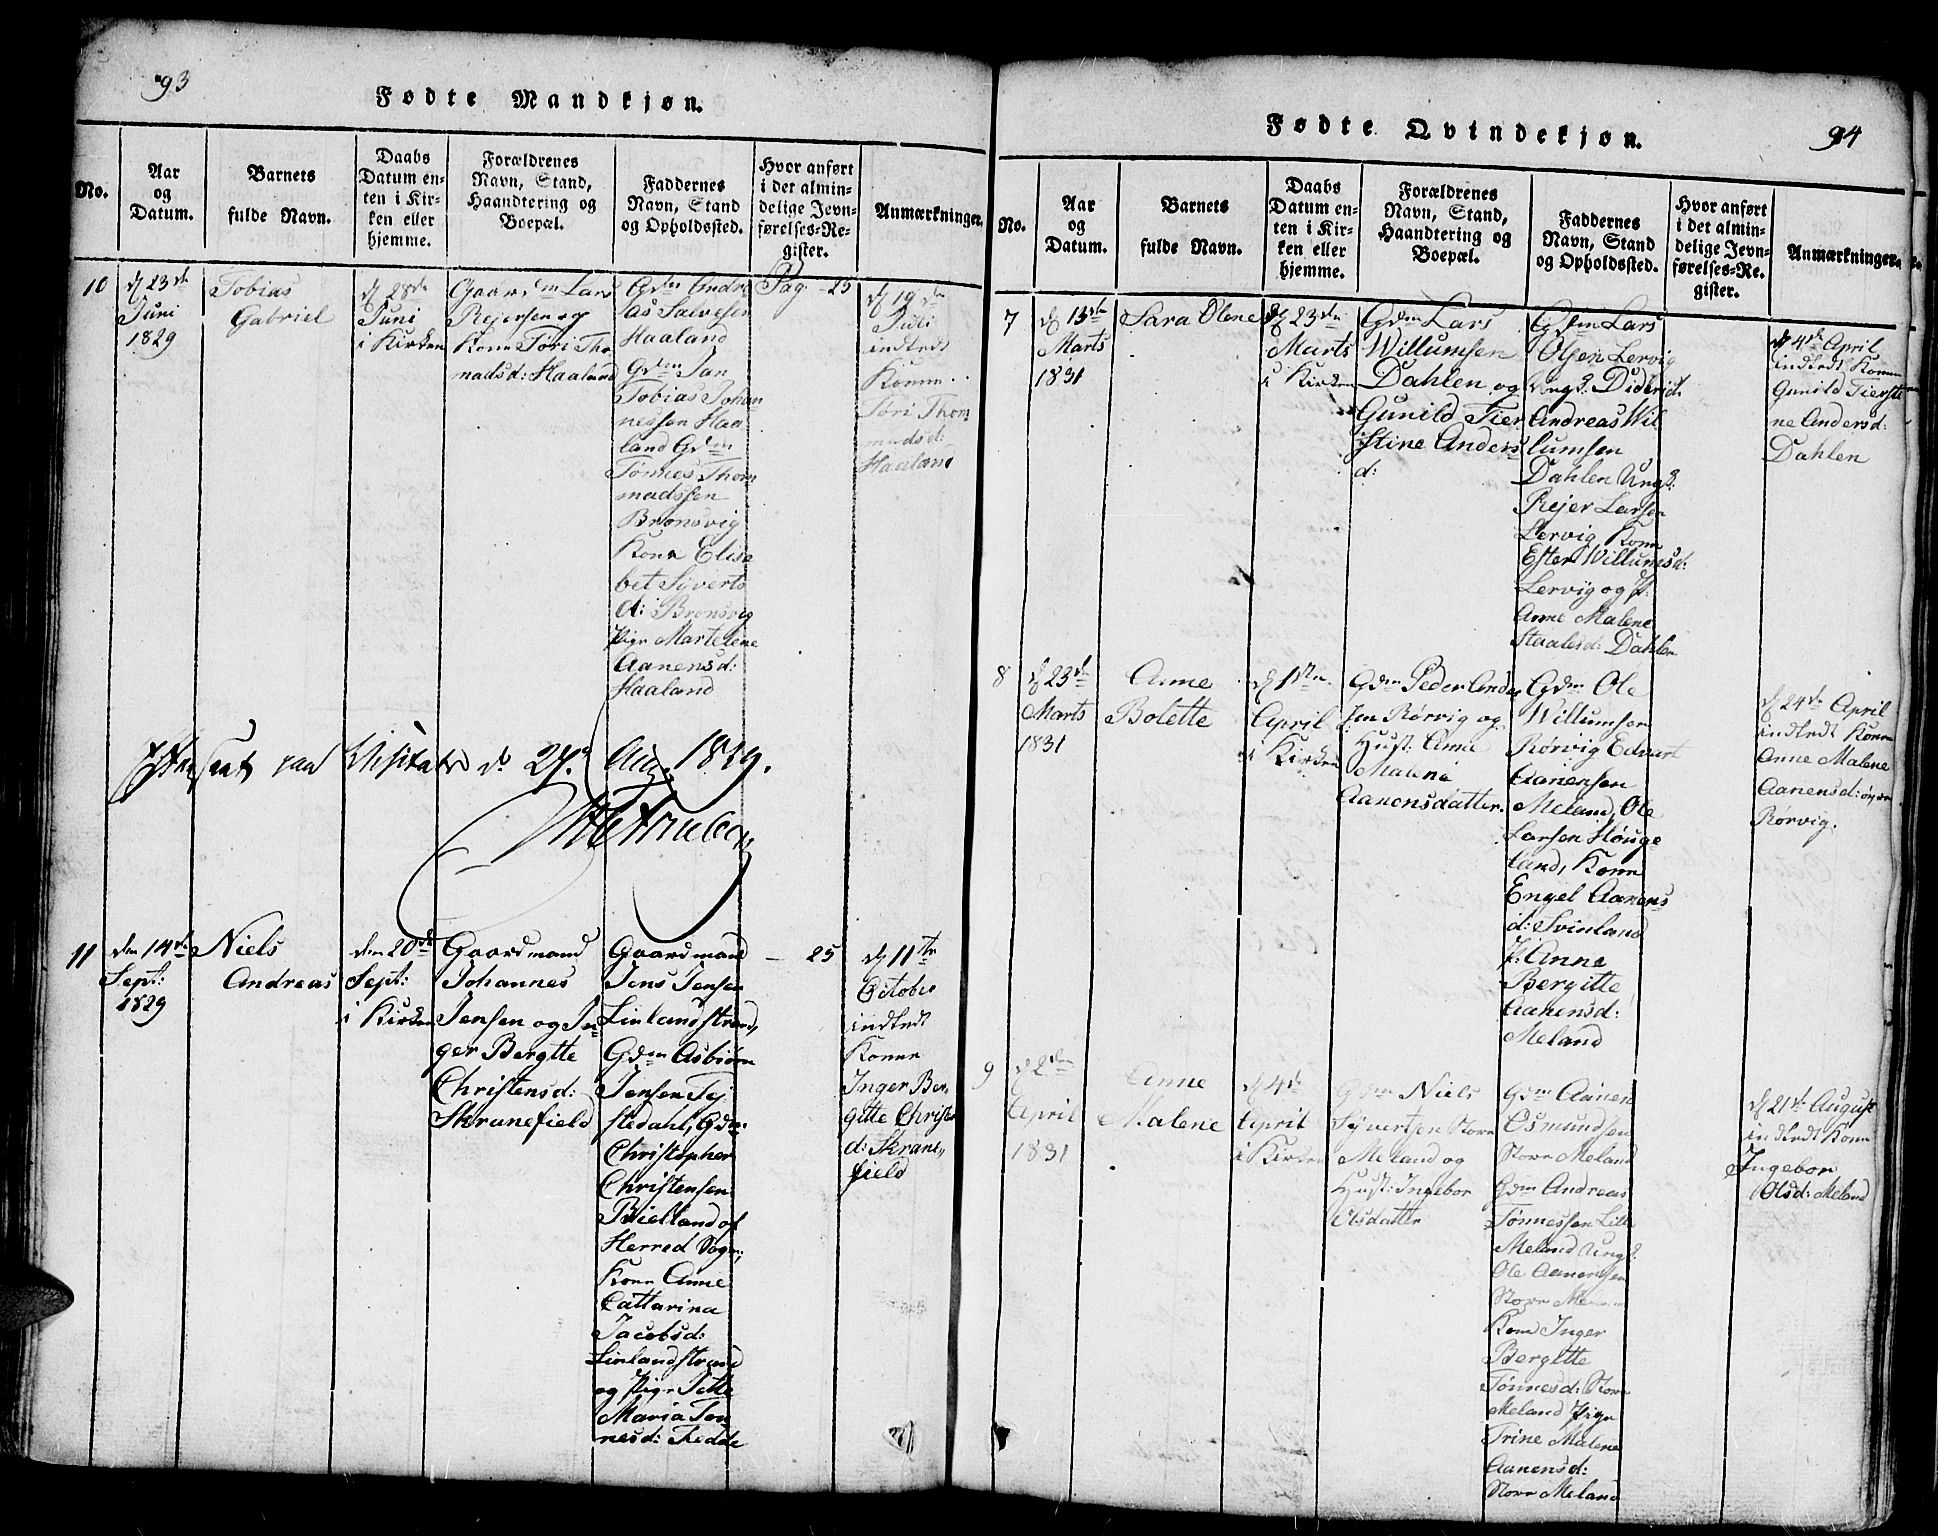 93
Fødte Mandkjøn.
No.
Aar
og
Datum.
Barnets
fulde Navn.
Daabs
Datum en-
ten i Kir-
ken eller
hjemme.
Forældrenes
Navn, Stand,
Haandtering og
Boepæl.
Faddernes
Navn, Stand
og Opholdssted.
Hvor anført
i det almin-
delige Jevn-
førelses-Re-
gister.
Anmærkninger.
10
d 23de
Juni
1829
Tobias
Gabriel
d 28de
Juni
i Kirken
Gaardm Lars
Rejersen og
Kone Tøri Tho
madsd: Haaland
Gdm Andre
as Salvesen
Haaland
Gdm Jan
Tobias Johan
nessen Haa
land Gdm
Tønnes Thom
madssen
Brønsvig
Kone Elisa
bet Syverts
d: Brønsvig
Pige Martelene
Aanensd:
Haaland
Pag. 25
d 19de
Juli
indledt
Konen
Tøri Thom
madsd:
Haaland
paa Visitats d. 27. Aug. 1829.
11
den 14de
Sept:
1829
Niels
Andreas
den 20de
Sept:
i Kirken
Gaardmand
Johannes
Jensen og In
ger Bergtte
Christensd:
Skranefield
Gaardmand
Jens Jensen
Linlandstrand,
Gdm Asbiørn
Jensen Tej
stedahl, Gdm:
Christopher
Christensen
Bielland af
Herred Sogn;
Kone Anne
Cattarina
Jacobsd:
Linlandstrand
og Pige Jette
Maria Tøn
nesd: Fedde
— 25
d 11te
October
indledt
Konen
Inger Ber,
gitte Christens
d: Skrane,
field
Fødte Qvindekjøn.
94
No.
Aar
og
Datum.
Barnets
fulde Navn.
Daabs
Datum en-
ten i Kir-
ken eller
hjemme.
Forældrenes
Navn, Stand,
Haandtering og
Boepæl.
Faddernes
Navn, Stand
og Opholdssted.
Hvor anført
i det almin-
delige Jevn-
førelses-Re-
gister.
Anmærkninger.
7
d 13de
Marts
1831
Sara Olene
d 23de
Marts
i Kirken
Gdm Lars
Willumsen
Dahlen og
Gunild Tier
stine Anders
d:
Gdm Lars
Olsen Lervig
Ungk. Diderik
Andreas Wil
lumsen
Dahlen Ungk:
Rejer Larsen
Lervig Kone
Ester Willumsd:
Lervig og P:
Anne Malene
Staalesd: Dahlen
d 4de April
indledt Konen
Gunild Tiersti
ne Andersd:
Dahlen
8
d 23de
Marts
1831
Anne
Bolette
d 1ste
April
i Kirken
Gdm Peder Ander
sen Rørvig og
Hust: Anne
Malene
Aanensdatter.
Gdm Ole
Willumsen
Rørvig Edvart
Aanensen
Meland, Ole
Larsen Høuge
land, Kone
Engel Aanens
d: Svinland
P: Anne
Bergitte
Aanensd:
Meland
d 24de April
indledt Konen
Anne Malene
Aanensd:
Rørvig.
9
d 2den
April
1831
Anne
Malene
d 4de
April
i Kirken
Gdm Niels
Syvertsen Store
Meland og
Hust: Ingebor
Olsdatter
Gdm Aanen
Osmundsen
Store Meland
Gdm Andreas
Tønnessen Lille
Meland Ungk.
Ole Aanensen
Store Meland
Kone Inger
Bergitte
Tønnesd: Store
Meland Pige
Trine Malene
Aanensd:
Store Meland
d 21de August
indledt Konen
Ingebor
Olsd: Meland